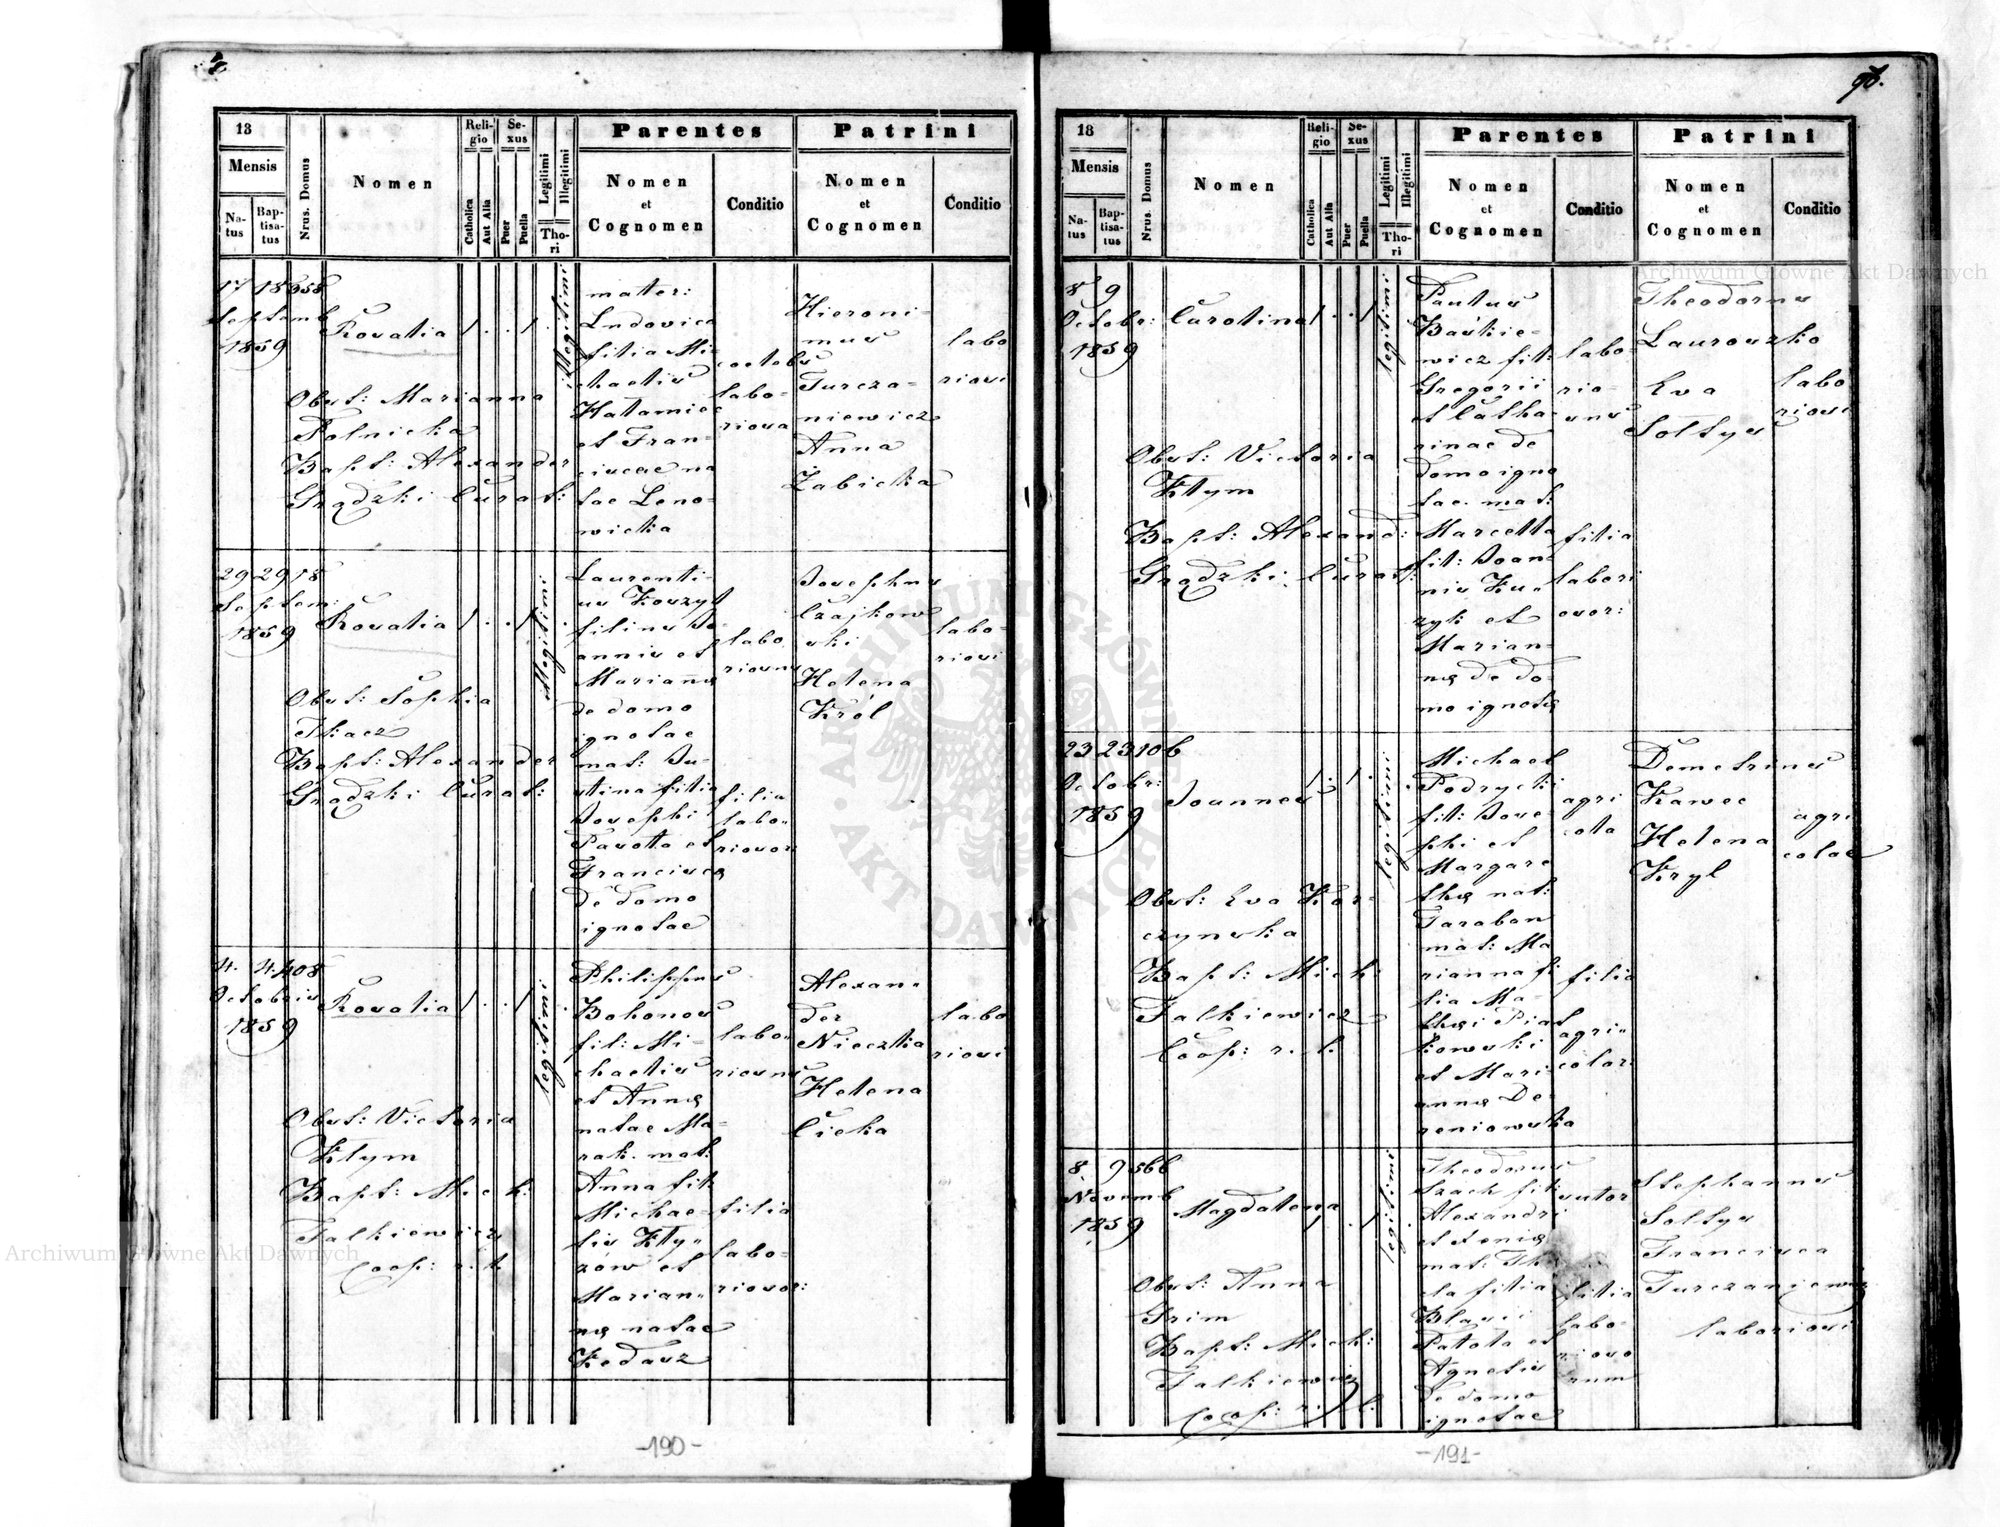 96.
18
Mensis
Na-
tus
Bap-
tisa-
tus
Nrus. Domus
Nomen
Reli-
gio
Catholica
Aut Alia
Se-
xus
Puer
Puella
Legitimi
Illegitimi
Tho-
ri
Parentes
Nomen
et
Cognomen
Conditio
Patrini
Nomen
et
Cognomen
Conditio
17 18 658
Septemb
1859
Rosalia 1 . . 1
illegitimi
Obst: Marianna
Polnicka
Bapt: Alexander
Grądzki Curat:
matter:
Ludovica
filia Mi-
chaelis
Hałamiec
et Fran-
ciscae na
tae Leno-
wicka
coelebs
labo-
riosa
Hieroni-
mus
Turcza-
niewicz
Anna
Zabicka
labo
riosi
29 29 18
Septem:
1859
Rosalia 1 . . 1
illegitimi
Obst: Sophia
Tkacz
Bapt: Alexander
Grądzki Curat:
Laurenti-
us Koszyk
filius Jo-
annis et
Mariannę
de domo
ignotae
mat: Ju-
stina filia
Josephi
Pasolla et
Francisca
de domo
ignotae
labo
riosus
filia
labo-
riosor:
Josephus
Czajkow
ski
Helena
Król
labo-
riosi
4. 4. 408
Octobris
1859
Rosalia 1 . . 1
legitimi
Obst: Victoria
Kłym
Bapt: Mich:
Falkiewicz
Coop: r. l.
Philippus
Bohonos
fil: Mi-
chaelis
et Annę
natae Ma-
rak. mat:
Anna fil:
Michae-
lis Kły-
zów et
Marian-
nę natae
Kedasz
labo-
riosus
filia
labo-
riosor:
Alexan-
der
Nieczka
Helena
Cieka
labo
riosi
-190-
18
Mensis
Na-
tus
Bap-
tisa-
tus
Nrus. Domus
Nomen
Reli-
gio
Catholica
Aut Alia
Se-
xus
Puer
Puella
Legitimi
Illegitimi
Tho-
ri
Parentes
Nomen
et
Cognomen
Conditio
Patrini
Nomen
et
Cognomen
Conditio
8 9
Octobr:
1859
Carolina 1 . . 1
legitimi
Obst: Victoria
Kłym
Bapt: Alexand:
Grądzki Curat:
Paulus
Baśkie-
wicz fil:
Gregorii
et Catha-
rinae de
domo igno
tae. mat:
Marcella
fil: Joan-
nis Ku-
zyk et
Marian-
nę de do-
mo ignotę
labo-
rio-
sus
filia
labori
osor:
Theodorus
Lauroszko
Eva
Soltys
labo
riosi
23 23 106
Octobr:
1859
Joannes 1 . 1 .
legitimi
Obst: Eva Kor-
czynska
Bapt: Mich:
Falkiewicz
Coop: r. l.
Michael
Podrycki
fil: Jose-
phi et
Margare
thę nat:
Taraban
mat: Ma
rianna fi
lia Ma-
thęi Piat
kowski
et Mari
annę De-
reniowska
agri
cola
filia
agri-
color:
Demetrius
Kawec
Helena
Kryl
agri
colae
8 9 566
Novemb
1859
Magdalena 1 . . 1
legitimi
Obst: Anna
Grim
Bapt: Mich:
Falkiewicz
Coop: r. l:
Theodorus
Szach fil:
Alexandri
et Xenię
mat: Th
cla filia
Blasii
Patola et
Agnetis
de domo
ignotae
sutor
filia
labo-
rioso
rum
Stephanus
Soltys
Francisca
Turczaniewicz
laboriosi
-191-
Archiwum Główne Akt Dawnych
Archiwum Główne Akt Dawnych
ARCHIWUM GŁÓWNE
AKT DAWNYCH